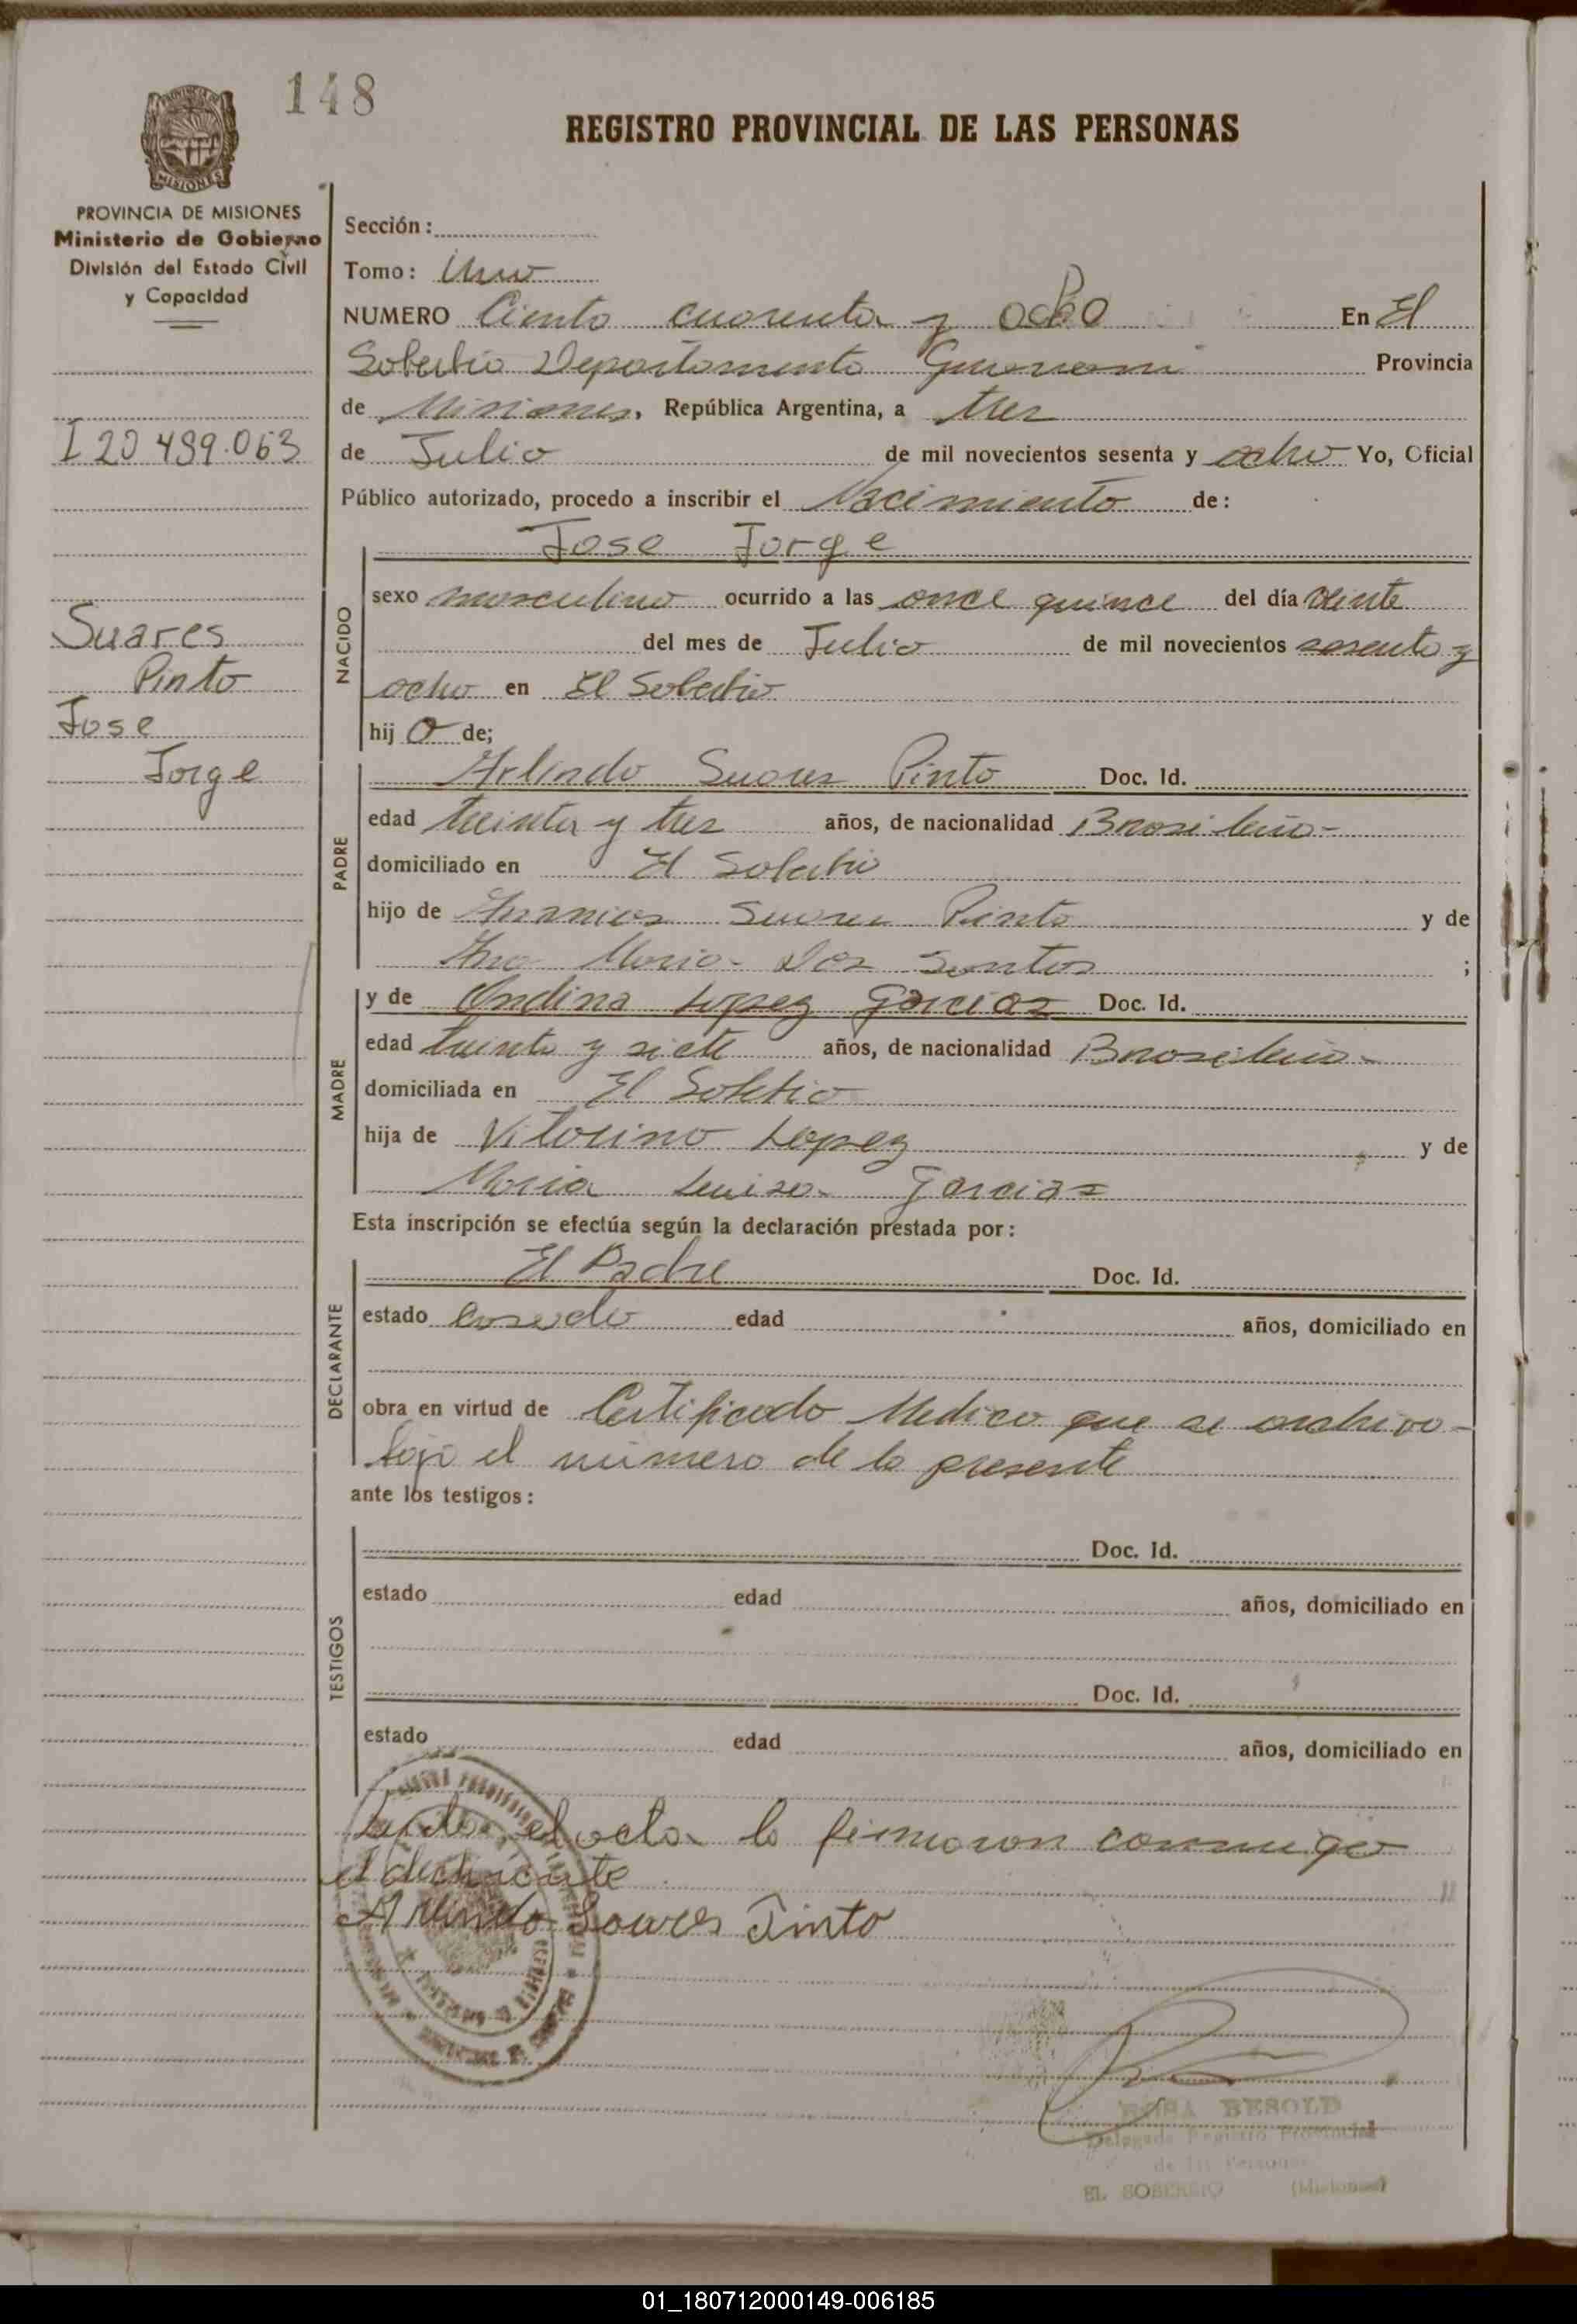 148
REGISTRO PROVINCIAL DE LAS PERSONAS
PROVINCIA DE
MISIONES
PROVINCIA DE MISIONES
Ministerio de Gobierno
División del Estado Civil
y Capacidad
Sección:
Tomo: Uno
NUMERO Ciento cuarenta y ocho En El
Soberbio Departamento Guarani Provincia
de Misiones, República Argentina, a tres
I 20 489.063
de Julio de mil novecientos sesenta y ocho Yo, Oficial
Público autorizado, procedo a inscribir el Nacimiento de:
Jose Jorge
NACIDO
sexo masculino ocurrido a las once quince del día veinte
Suares
Pinto
Jose
Jorge
del mes de Julio de mil novecientos sesenta y
ocho en El Soberbio
hij o de;
PADRE
Arlindo Suares Pinto Doc. Id.
edad treinta y tres años, de nacionalidad Brasileña-
domiciliado en El Soberbio
hijo de Suares Pinto y de
Ana Maria Dos Santos ;
MADRE
y de Ondina Lopez Garcias Doc. Id.
edad treinta y siete años, de nacionalidad Brasileña-
domiciliada en El Soberbio
hija de Vitorino Lopez y de
Maria Luiza Garcias
Esta inscripción se efectúa según la declaración prestada por:
DECLARANTE
El Padre Doc. Id.
estado Casado edad años, domiciliado en
obra en virtud de Certificado Medico que se archiva-
bajo el número de la presente
ante los testigos:
TESTIGOS
Doc. Id.
estado edad años, domiciliado en
Doc. Id.
estado edad años, domiciliado en
Leida el acta la firmaron conmigo
el declarante
Arlindo Soares Pinto
ROSA BESOLD
Delegada Registro Provincial
de las Personas
EL SOBERBIO (Misiones)
01_180712000149-006185